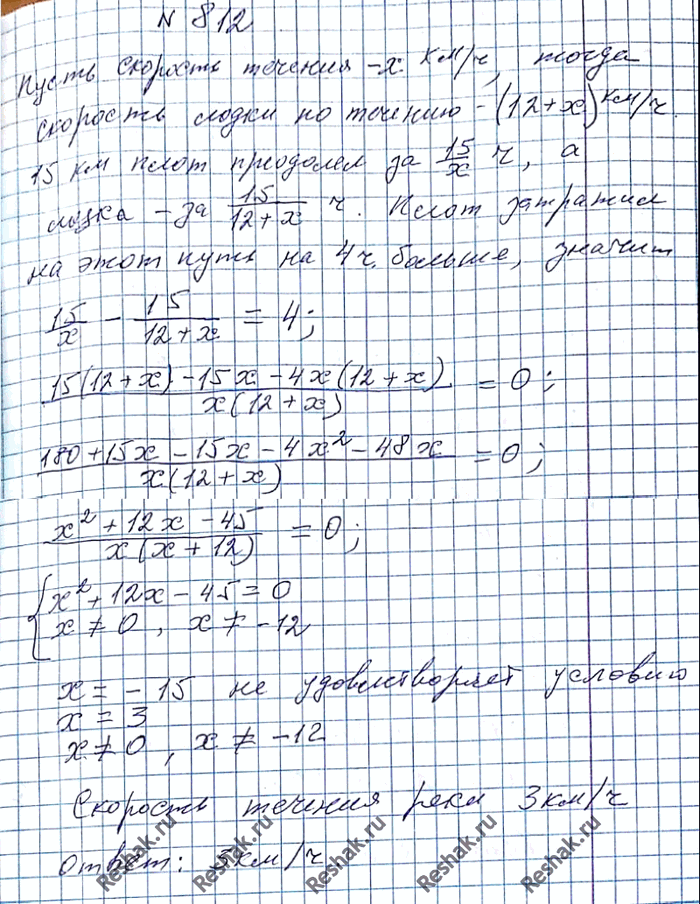 № 812
Пусть скорость течения -x км/ч, тогда
скорость лодки по течению - (12+x) км/ч.
15 км плот преодолел за 15/x ч, а
лодка - за 15/(12+x) ч. Плот затратил
на этот путь на 4ч. больше, значит
15/x - 15/(12+x) = 4;
(15(12+x) - 15x - 4x(12+x))/(x(12+x)) = 0;
(180+15x - 15x - 4x² - 48x)/(x(12+x)) = 0;
(x² + 12x - 45)/(x(x+12)) = 0;
{ x² + 12x - 45 = 0
x ≠ 0, x ≠ -12
x = -15 не удовлетворяет условию
x = 3
x ≠ 0, x ≠ -12
Скорость течения реки 3км/ч
Ответ: 3км/ч
Reshak.ru Reshak.ru Reshak.ru Reshak.ru Reshak.ru